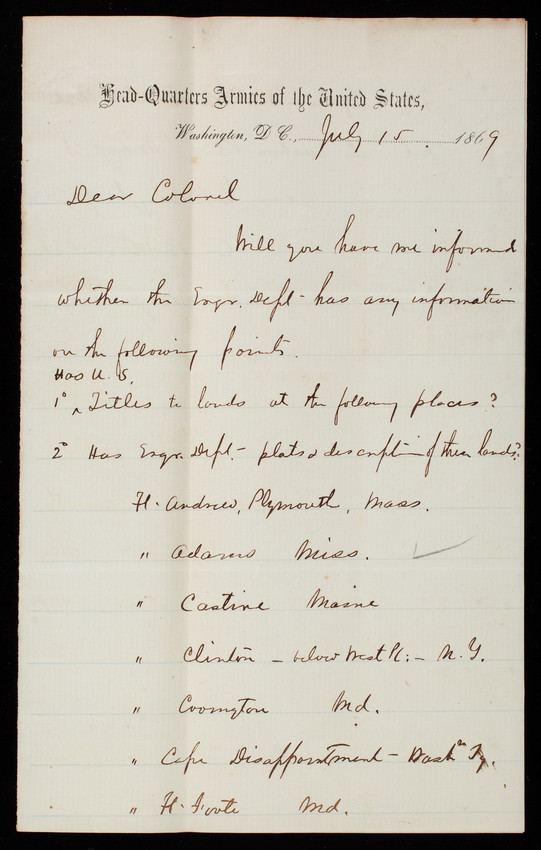 Head-Quarters Armies of the United States,
Washington, D. C., July 15. 1869
Dear Colonel
Will you have me informed
whether the Engr. Dept- has any information
on the following points.
Has U. S.
1° ^ Titles to lands at the following places?
2° Has Engr. Dept.- plats & description of these lands?
Ft. Andrew, Plymouth, Mass.
" Adams Miss.
" Castine Maine
" Clinton - below West Pt.- N. Y.
" Covington Md.
" Cape Disappointment - Washn Ty.
" Ft. Foote Md.